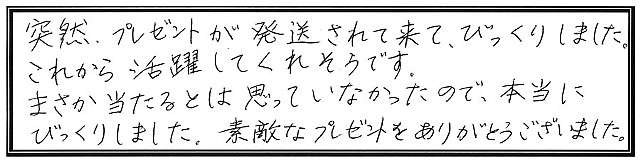 突然、プレゼントが発送されて来て、びっくりしました。
これから活躍してくれそうです。
まさか当たるとは思っていなかったので、本当に
びっくりしました。素敵なプレゼントをありがとうございました。